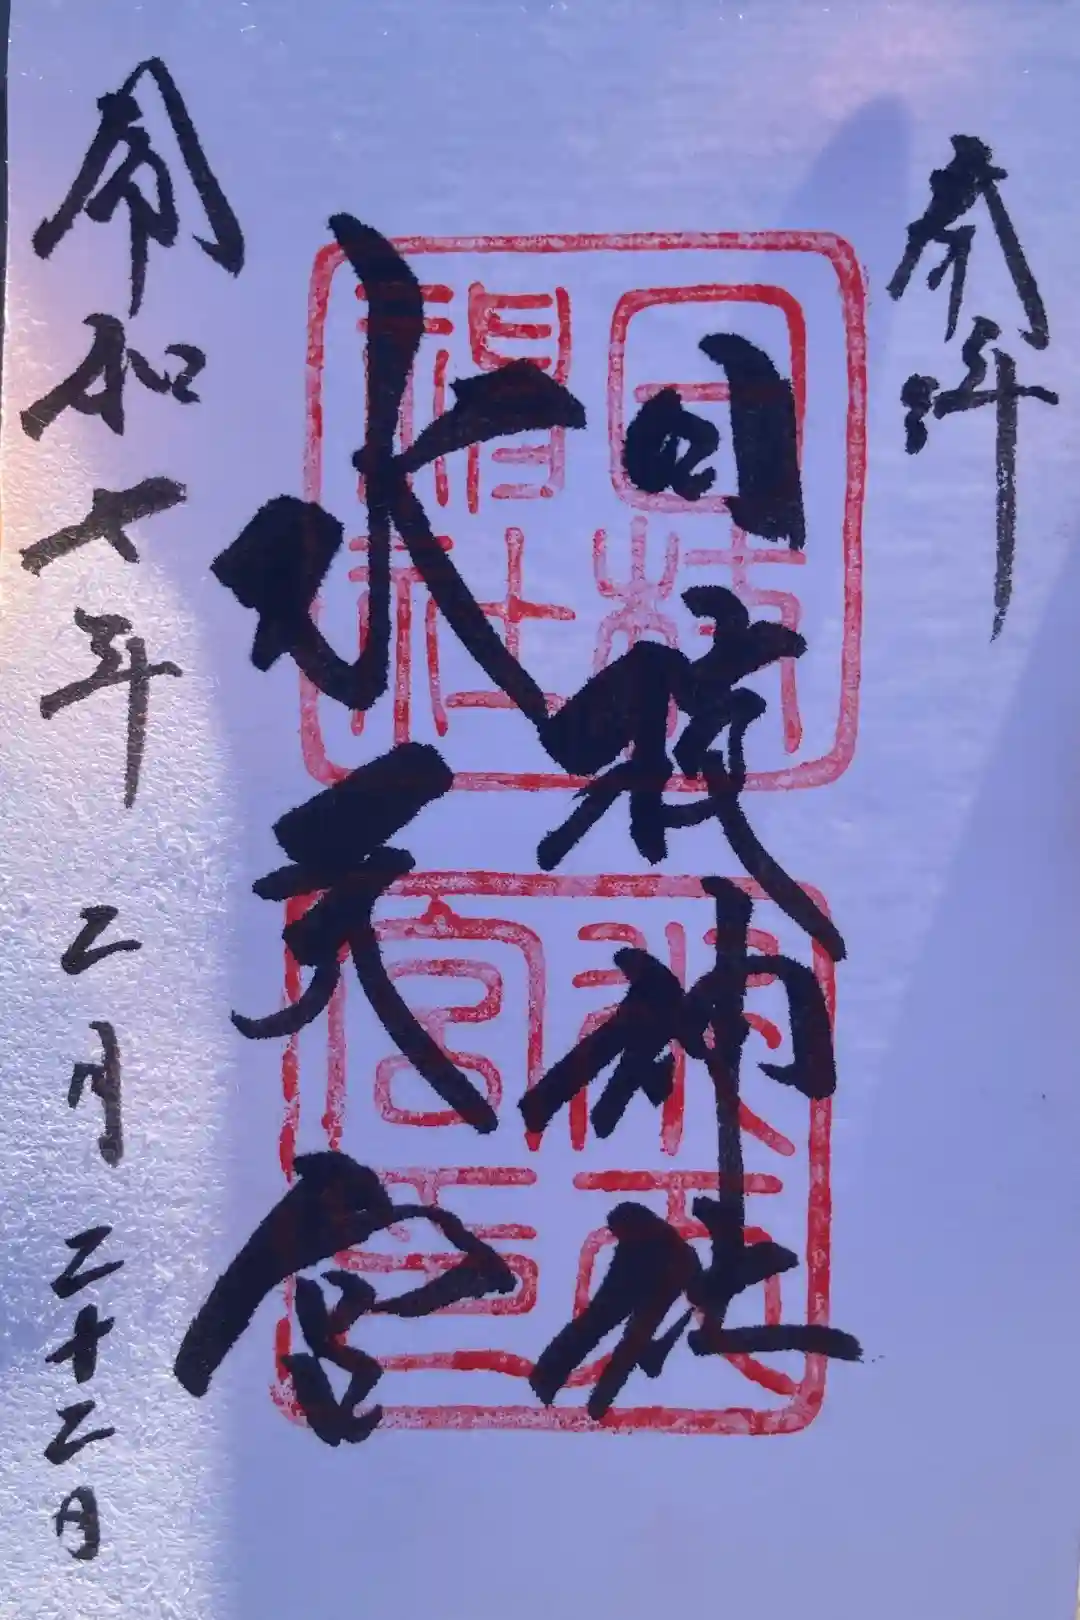 奉拝
日枝神社
水天宮
令和七年二月二十二日
日枝
神社
水天
宮